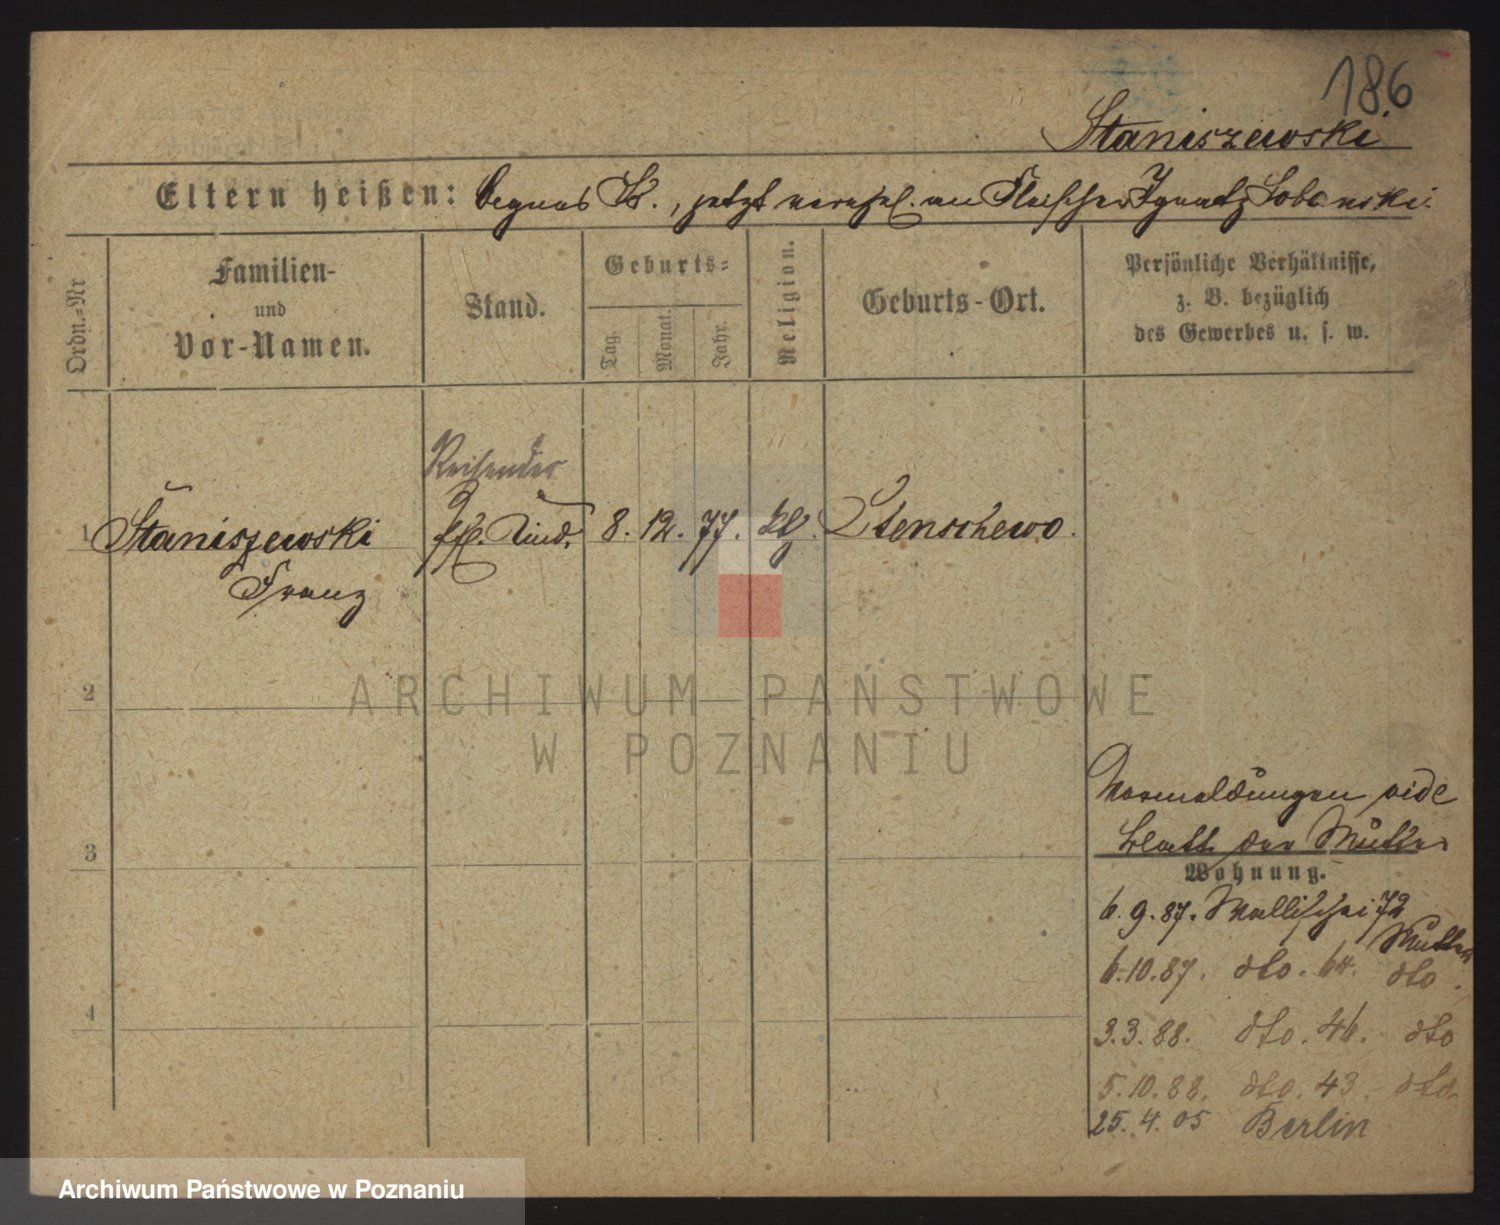 186
Staniszewski
Eltern heißen: St., jetzt verehel. an Fleischer Ignatz Sobanski.
Ordn.-Nr
Familien-
und
Vor-Namen.
Stand.
Geburts-
Tag.
Monat.
Jahr.
Religion.
Geburts-Ort.
Persönliche Verhältnisse,
z. B. bezüglich
des Gewerbes u. s. w.
Reisender
1 Staniszewski Kind. 8. 12. 77. Stenschewo.
Franz
2
ARCHIWUM PAŃSTWOWE
W POZNANIU
Vormeldungen vide
3 Blatt der Mutter
Wohnung.
6.9.87. Wallischei 72
Mutter
6.10.87. dto. 64. dto.
4 3.3.88. dto. 46. dto
5.10.88. dto. 43. dto.
25.4.05 Berlin
Archiwum Państwowe w Poznaniu